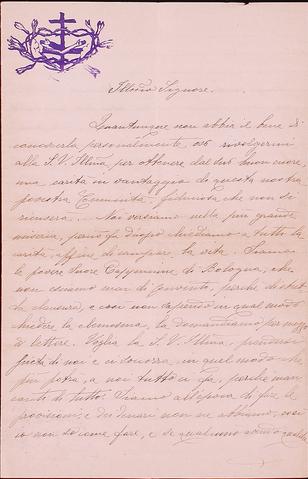 Illmo Signore.
Quantunque non abbia il bene di
conoscerla personalmente, oso rivolgermi
alla S. V. Illma, per ottenere dal suo buon cuore,
una carità in vantaggio di questa nostra
povera Comunità, fiduciosa che non si
ricuserà. Noi versiamo nella più grande
miseria, per cui fa d'uopo chiediamo a tutti la
carità, affine di campare la vita. Siamo
le povere Suore Cappuccine di Bologna, che
non usciamo mai di Convento, perchè di stretta
clausura, e così non sapendo in qual modo
chiedere la elemosina, la domandiamo per mezzo
di lettere. Voglia la S. V. Illma, prendersi
pietà di noi e ci soccorra, in quel modo che
più potrà, a noi tutto ci fa, perchè man
canti di tutto. Siamo all'epoca di fare le
provisioni, e di denari non ne abbiamo, così
io non so come fare, e se qualcuno